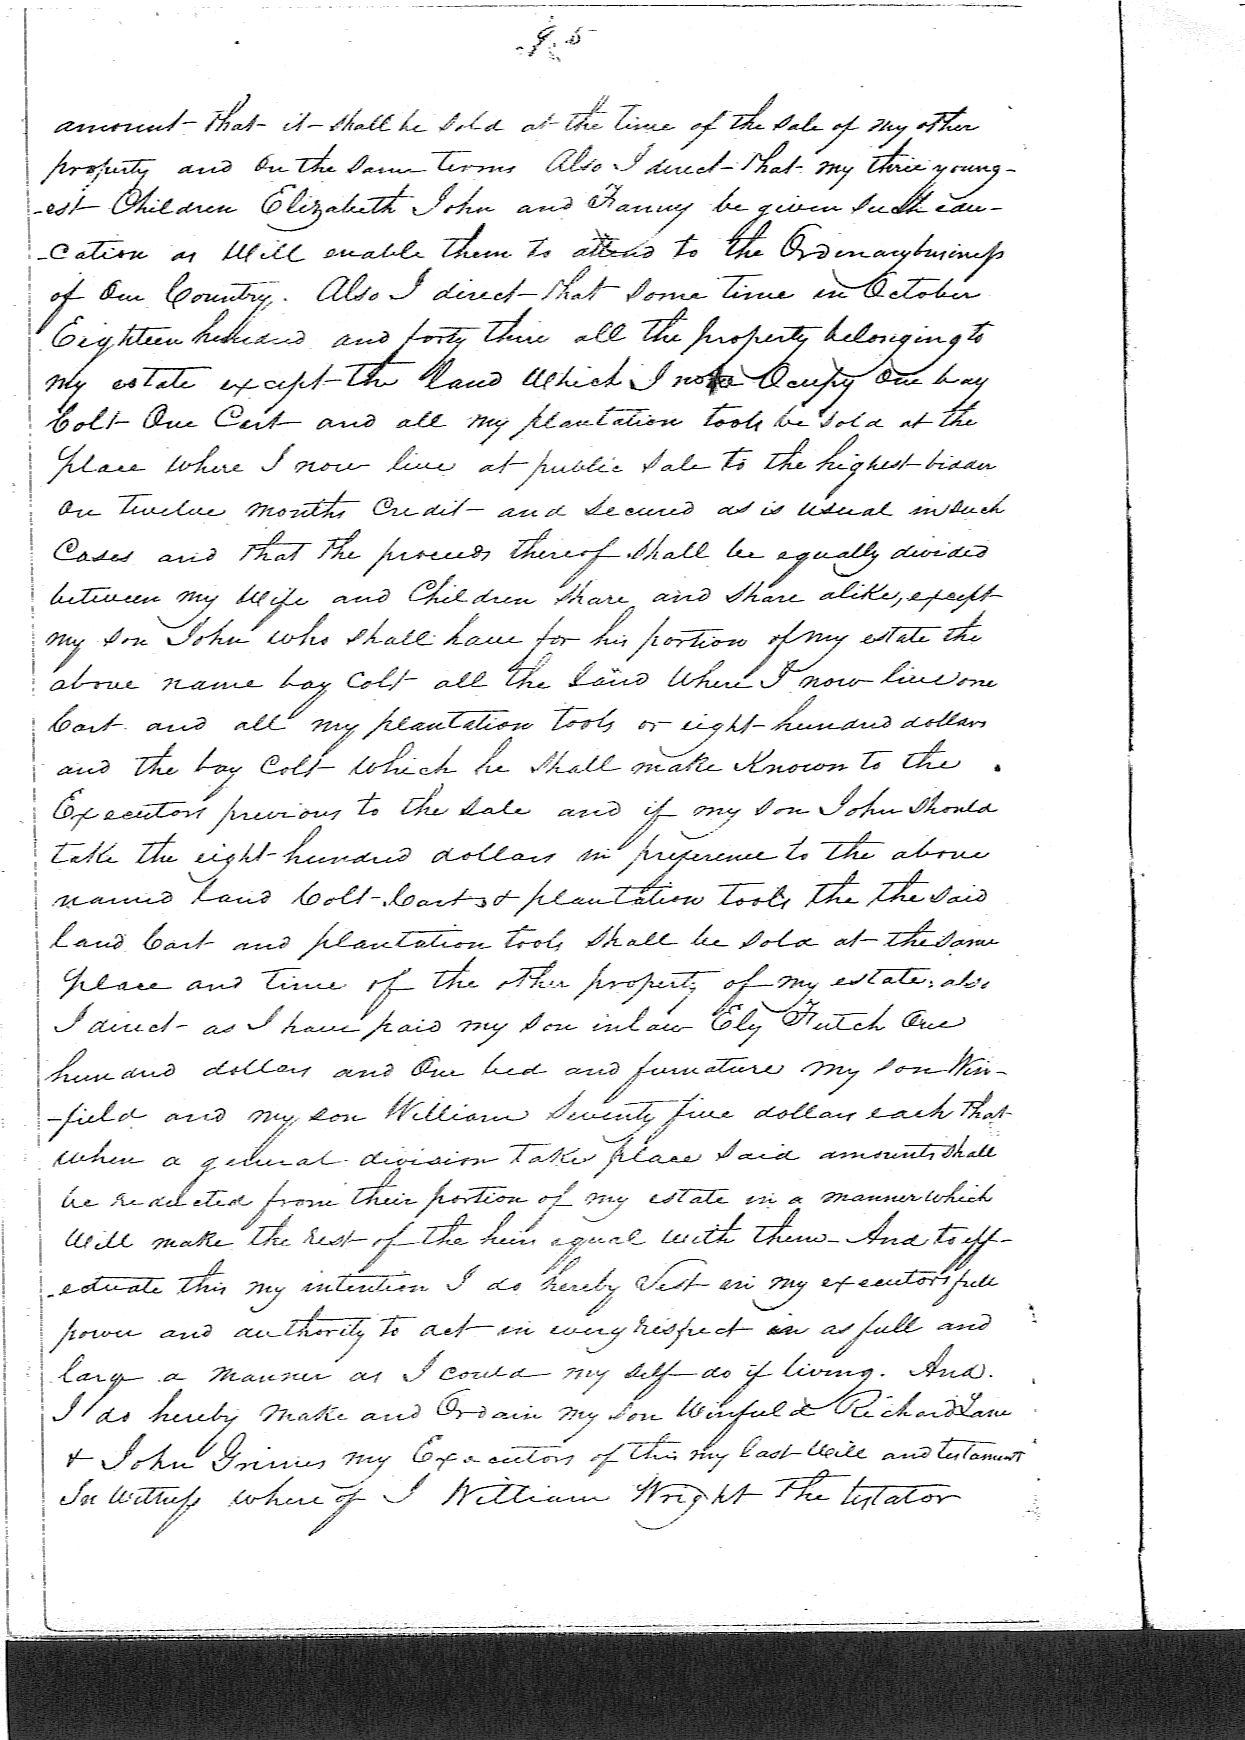 95
amount that it shall be sold at the time of the sale of my other
property and on the same terms Also I direct that my three young-
-est Children Elizabeth John and Fanny be given such edu-
-cation as Will enable them to attend to the Ordinary business
of Our Country. Also I direct that some time in October
Eighteen hundred and forty three all the property belonging to
my estate except the land Which I now Ocupy One bay
Colt One Cart and all my plantation tools be sold at the
place where I now live at public sale to the highest bidder
on twelve months Credit and secured as is usual in such
Cases and that the proceeds thereof shall be equally divided
between my Wife and Children share and share alike, except
my son John who shall have for his portion of my estate the
above name bay Colt all the land Where I now live one
Cart and all my plantation tools or eight hundred dollars
and the bay Colt Which he shall make Known to the
Executors previous to the sale and if my son John should
take the eight hundred dollars in preference to the above
named land Colt Cart & plantation tools the the said
land Cart and plantation tools shall be sold at the same
place and time of the other property of my estate, also
I direct as I have paid my son in law Ely Futch One
hundred dollars and One bed and furnature my son Win-
-field and my son William Seventy five dollars each that
when a general division take place said amounts shall
be deducted from their portion of my estate in a manner which
Will make the rest of the heirs equal with them - And to eff-
-ectuate this my intention I do hereby Vest in my executors full
power and authority to act in every respect in as full and
large a manner as I could my self do if living. And
I do hereby Make and Ordain my son Winfield Richard Lane
& John Grimes my Executors of this my last Will and testament
In Witness where of I William Wright the testator